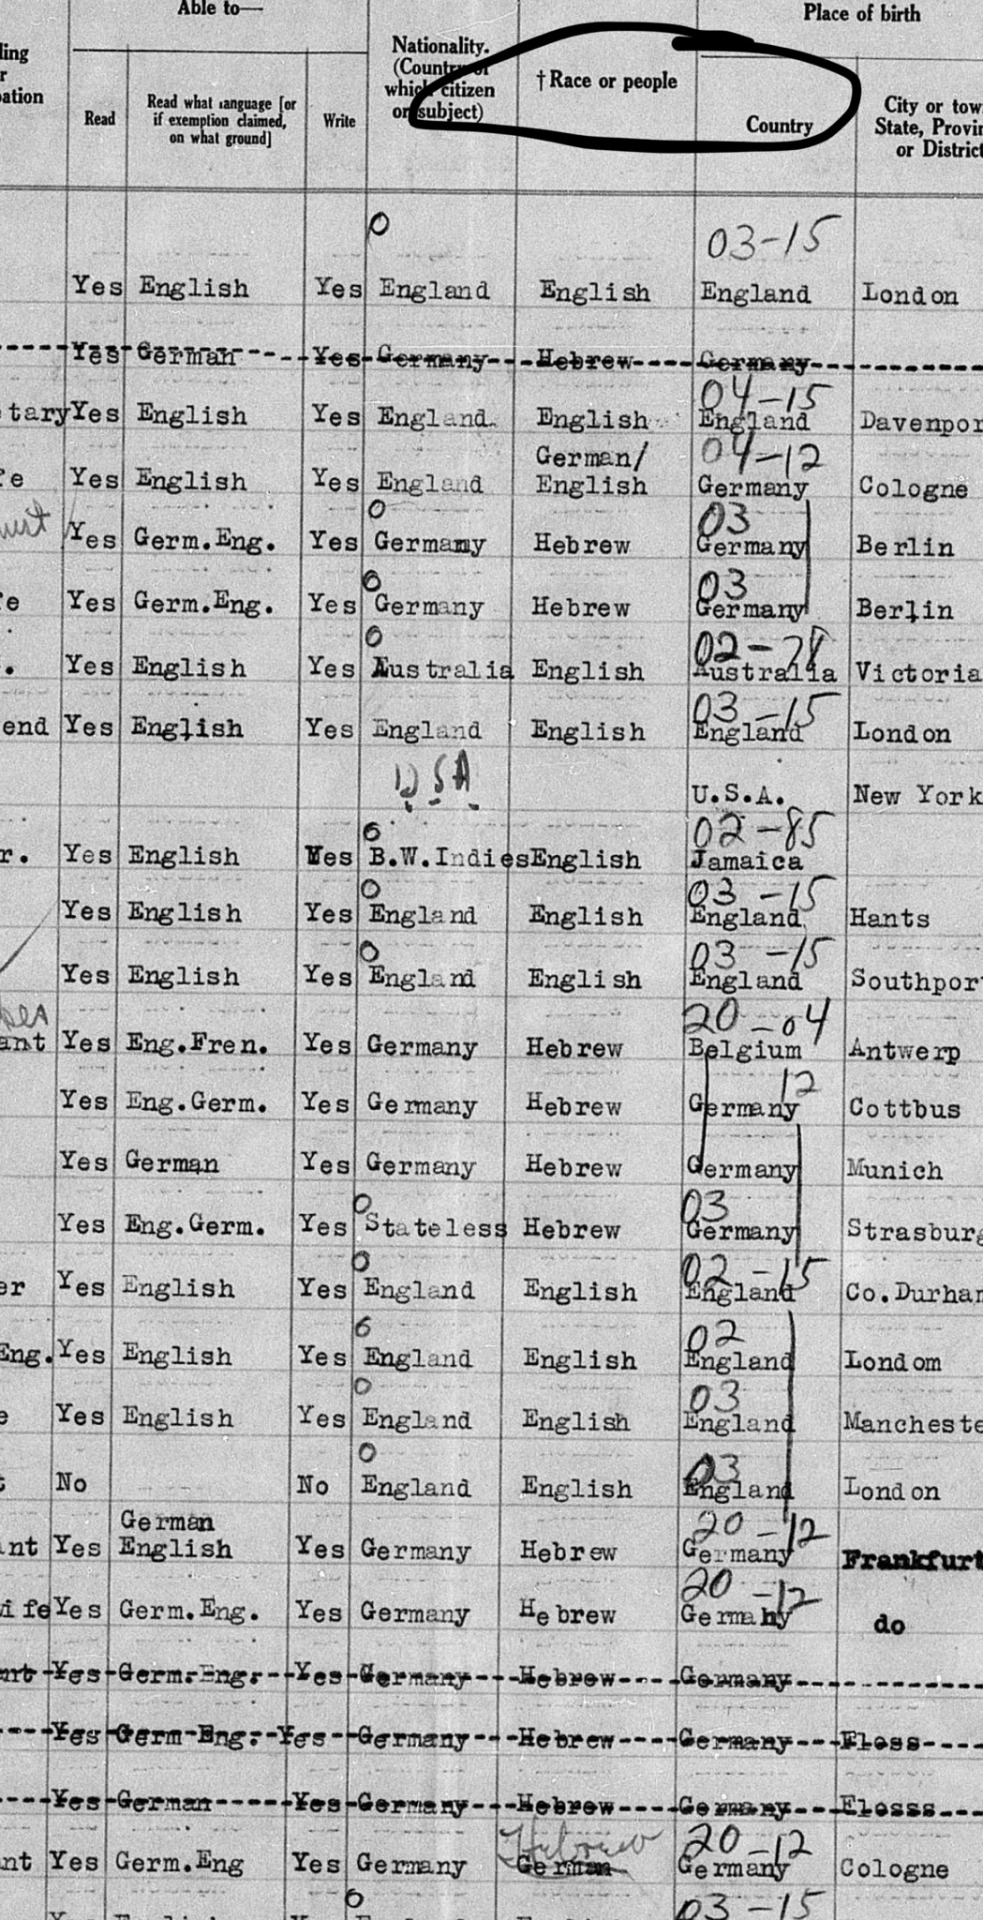 Able to—
Place of birth
ling
r
pation
Read
Read what language [or
if exemption claimed,
on what ground]
Write
Nationality.
(Country of
which citizen
or subject)
†Race or people
Country
City or tow
State, Provin
or District
0 03-15
Yes English Yes England English England London
Yes German Yes Germany Hebrew Germany
04-15
etary Yes English Yes England English England Davenpor
German/ 04-12
fe Yes English Yes England English Germany Cologne
0 03
Yes Germ.Eng. Yes Germany Hebrew Germany Berlin
0 03
fe Yes Germ.Eng. Yes Germany Hebrew Germany Berlin
0 02-78
. Yes English Yes Australia English Australia Victoria
03-15
end Yes English Yes England English England London
USA
U.S.A. New York
0 02-85
r. Yes English Yes B.W.Indies English Jamaica
0 03-15
Yes English Yes England English England Hants
0 03-15
Yes English Yes England English England Southpor
20-04
ant Yes Eng.Fren. Yes Germany Hebrew Belgium Antwerp
12
Yes Eng.Germ. Yes Germany Hebrew Germany Cottbus
Yes German Yes Germany Hebrew Germany Munich
0 03
Yes Eng.Germ. Yes Stateless Hebrew Germany Strasburg
0 02-15
er Yes English Yes England English England Co.Durham
6 02
Eng. Yes English Yes England English England Londom
0 03
e Yes English Yes England English England Mancheste
0 03
t No No England English England London
German 20-12
ant Yes English Yes Germany Hebrew Germany Frankfurt
20-12
wife Yes Germ.Eng. Yes Germany Hebrew Germany do
ant Yes Germ.Eng. Yes Germany Hebrew Germany
Yes Germ Eng. Yes Germany Hebrew Germany Eloss
Yes German Yes Germany Hebrew Germany Elosss
Hebrew 20-12
ant Yes Germ.Eng Yes Germany German Germany Cologne
0 03-15